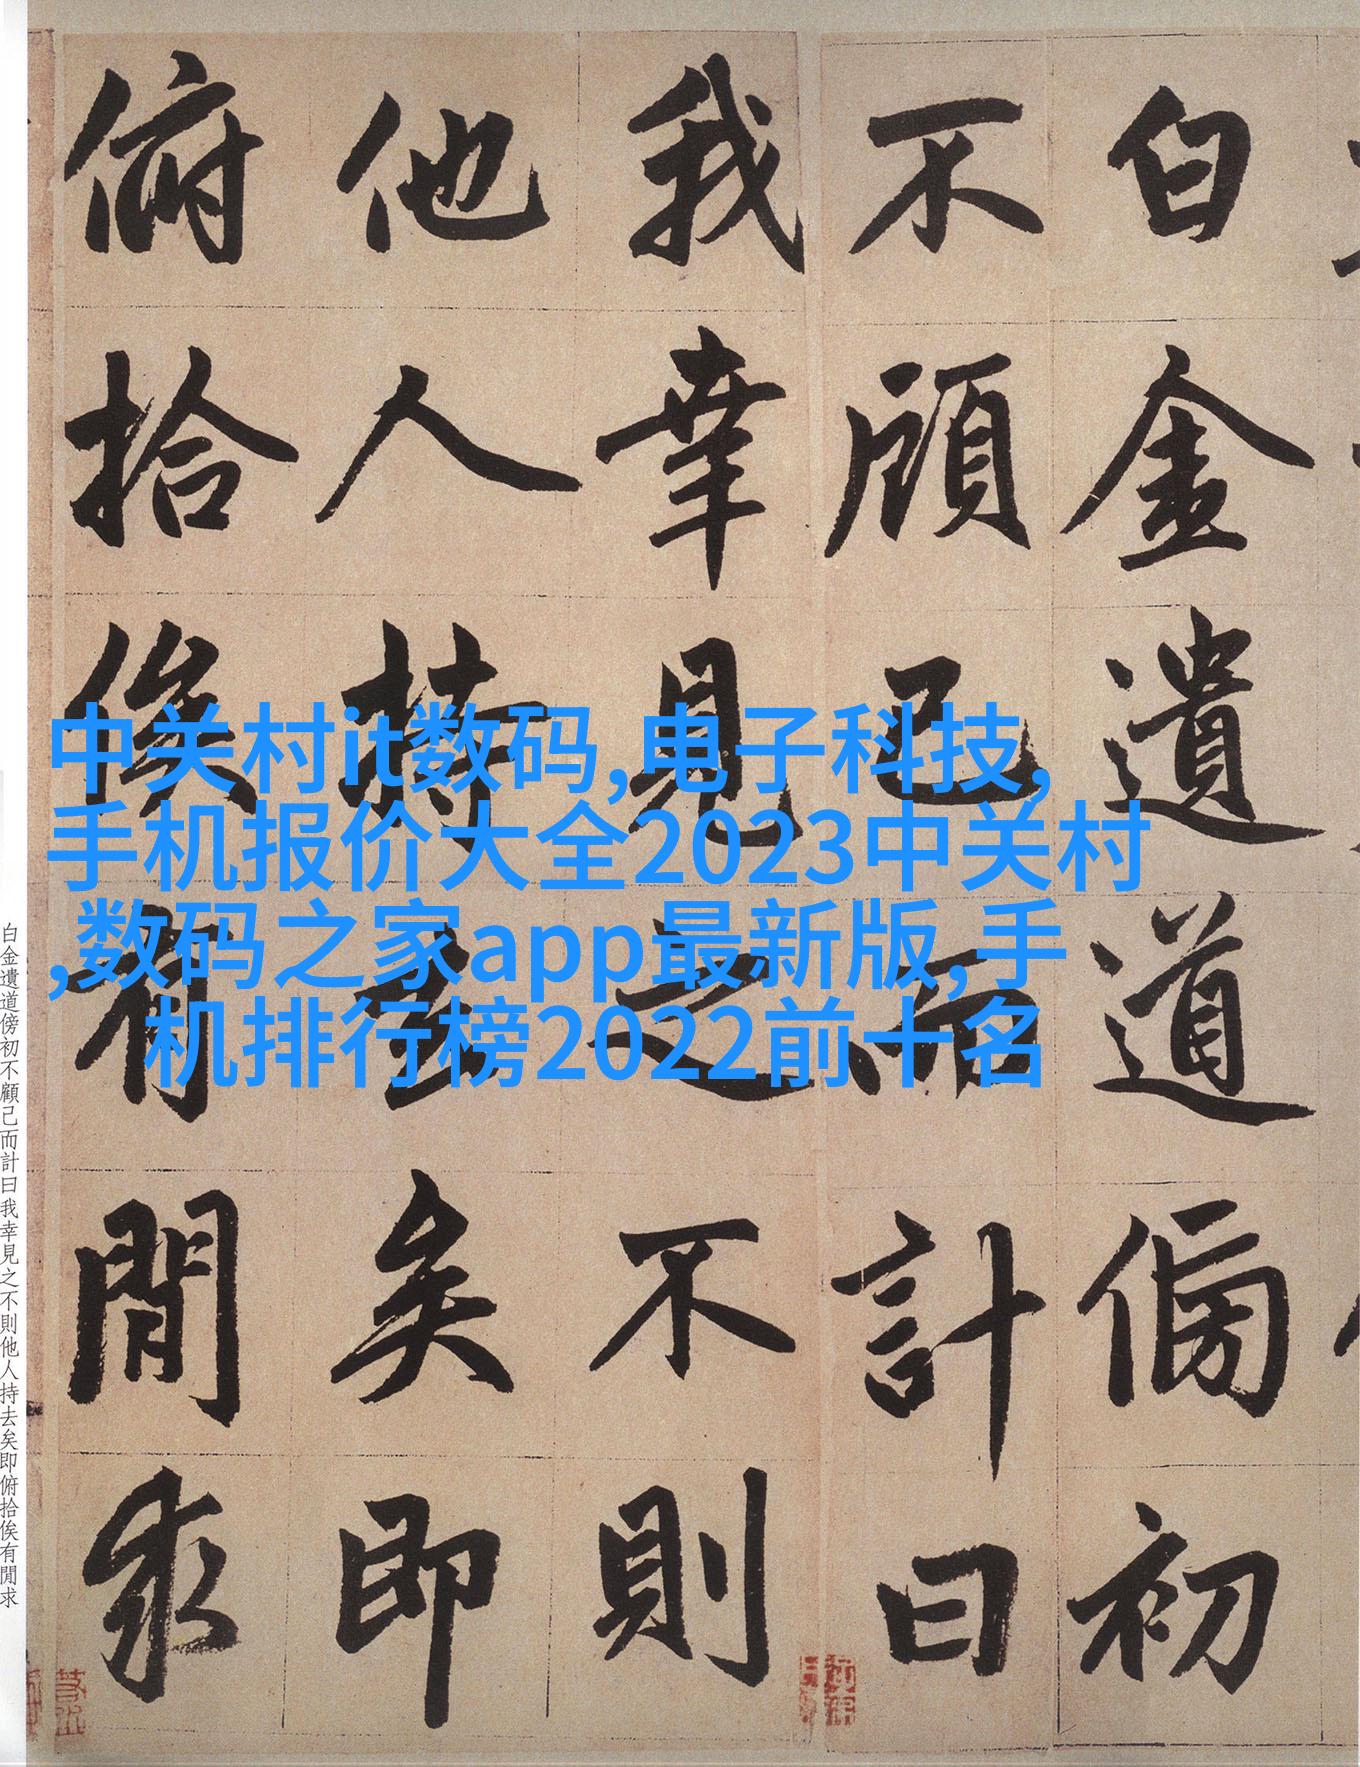 白金遺道傍初
不顧已而計曰
我幸見之不則
他人持去矣即
俯拾俟有閒求
中关村it数码,电子科技,
手机报价大全2023中关村
,数码之家app最新版,手
机排行榜2022前十名
白金遺道傍初不顧己而計曰我幸見之不則他人持去矣即俯拾俟有閒求